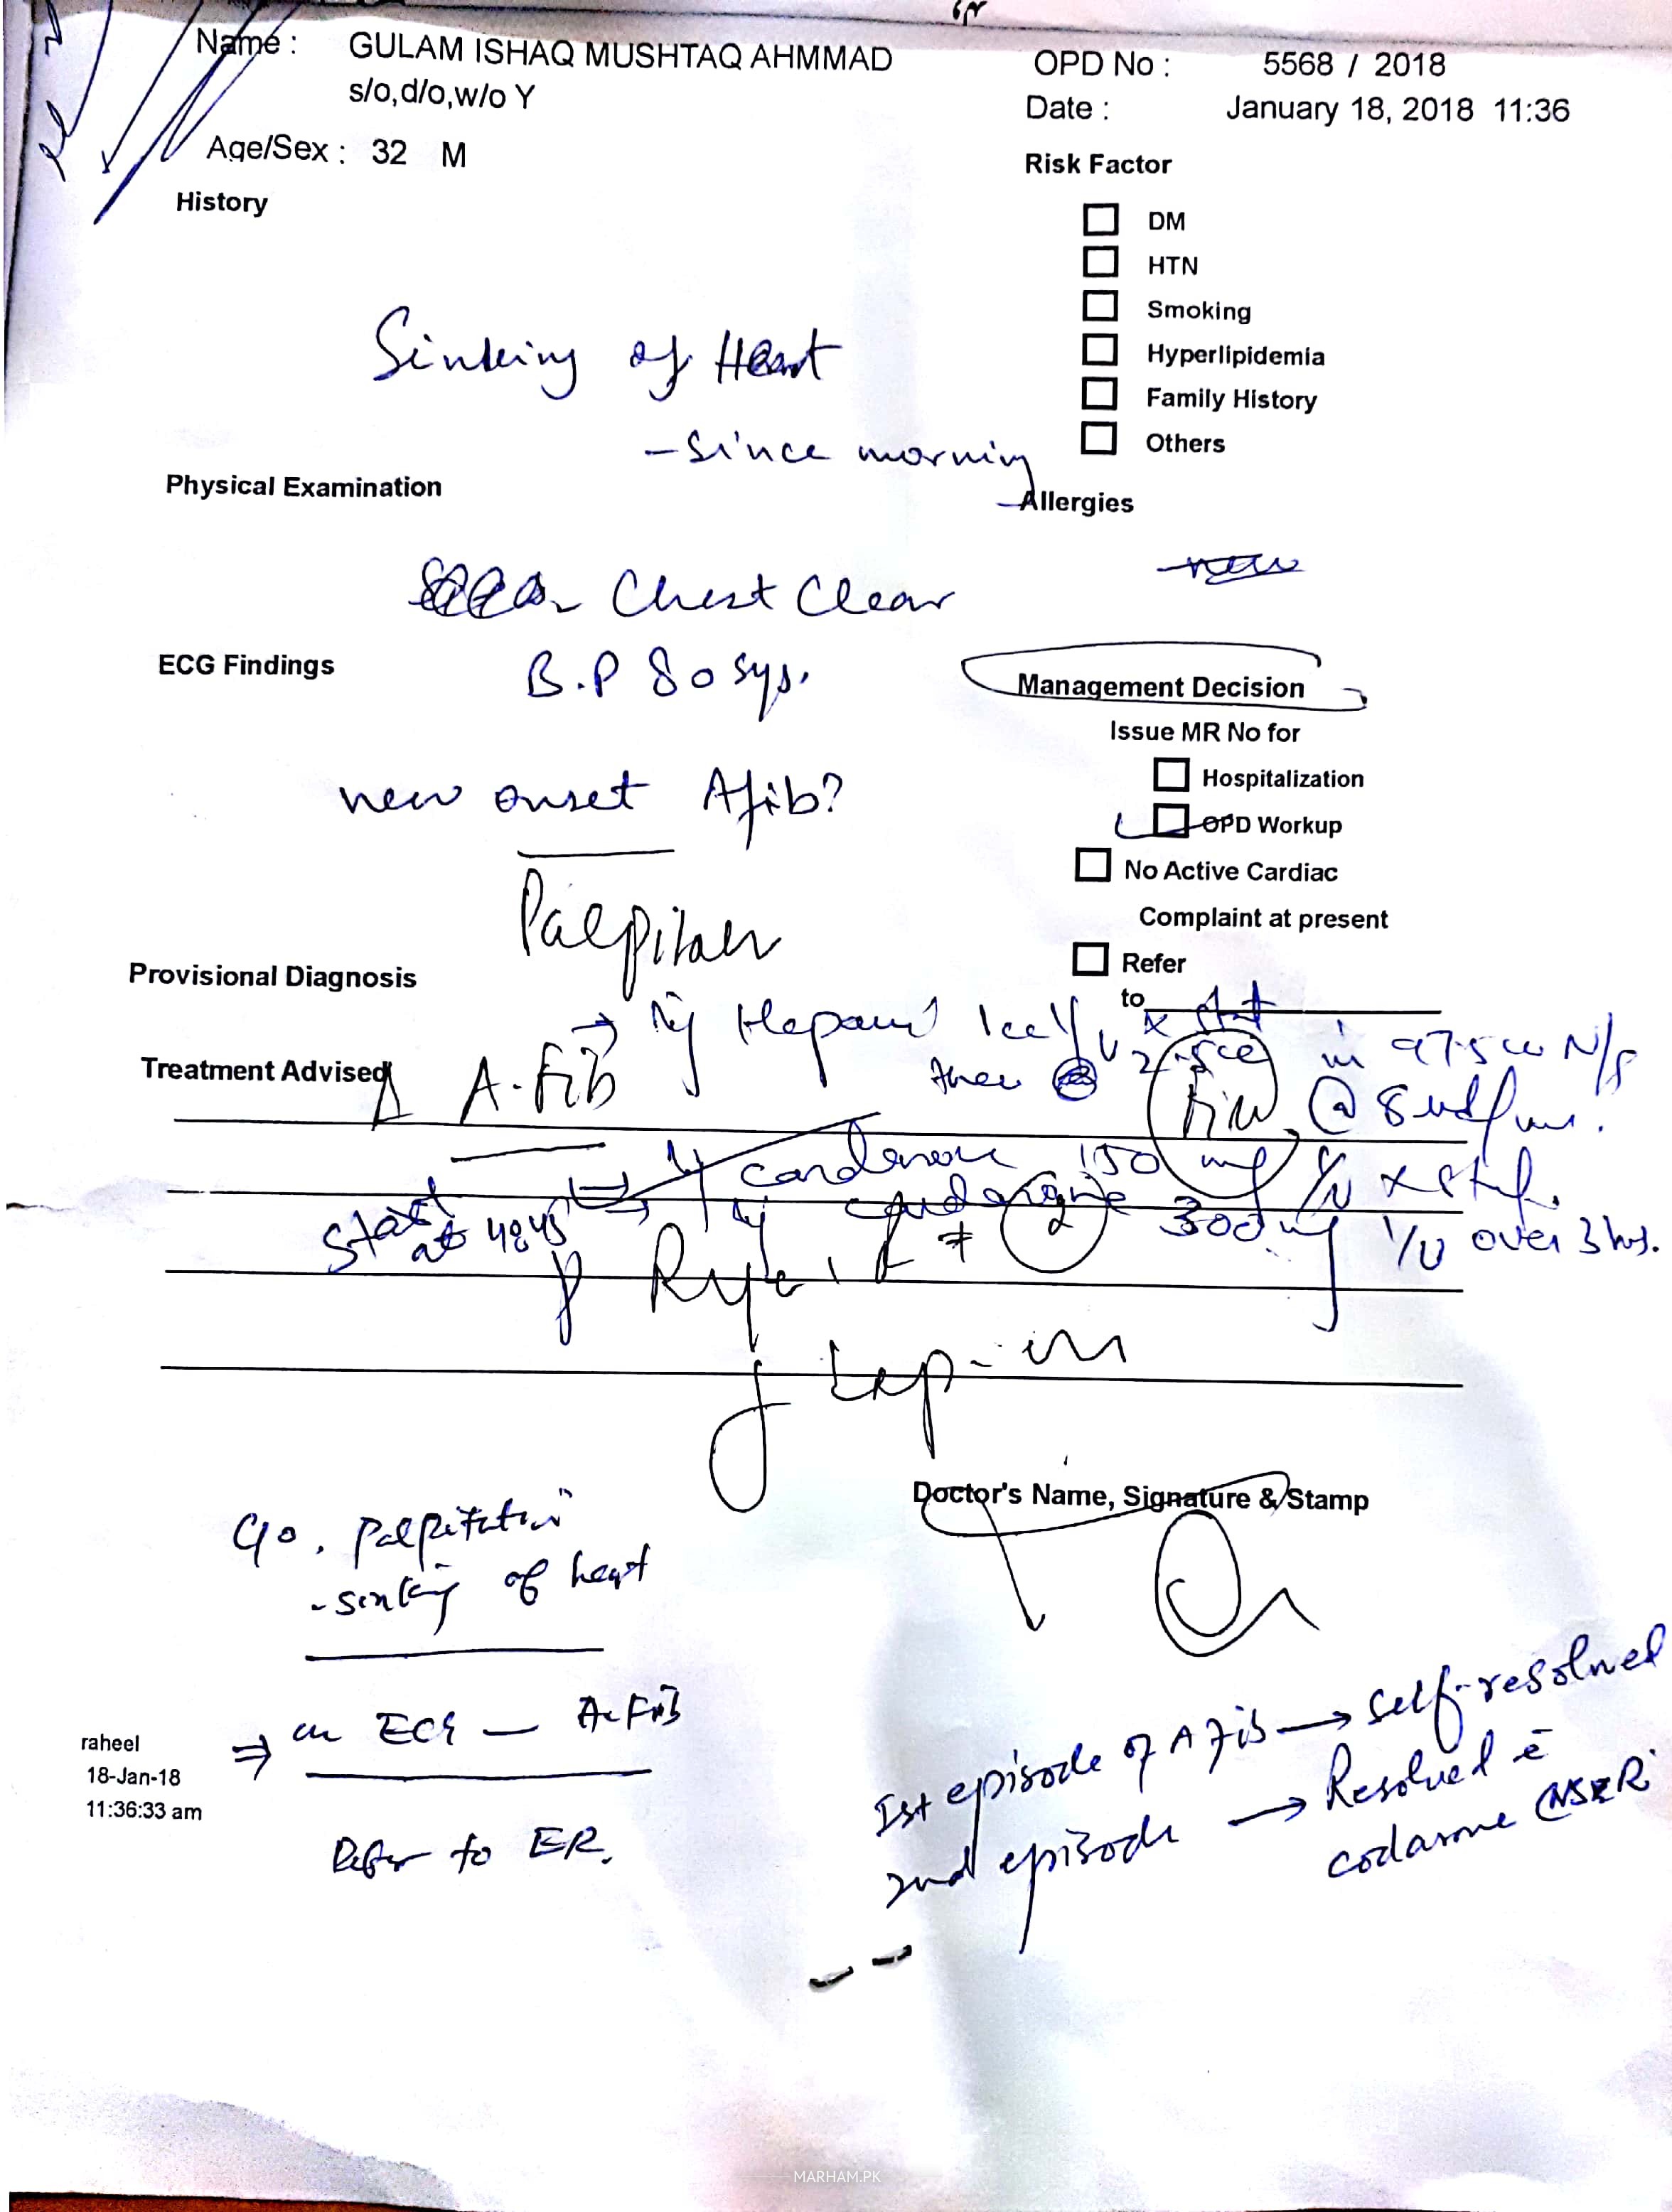 Name : GULAM ISHAQ MUSHTAQ AHMMAD
s/o,d/o,w/o Y
Age/Sex : 32 M
OPD No : 5568 / 2018
Date : January 18, 2018 11:36
History
Risk Factor
DM
HTN
Smoking
Hyperlipidemia
Family History
Others
Sinking of Heart
- Since morning
Physical Examination
Allergies
Chest Clear
B.P 80 sys.
ECG Findings
new onset Afib?
Palpitan
Management Decision
Issue MR No for
Hospitalization
OPD Workup
No Active Cardiac
Complaint at present
Refer
to
Provisional Diagnosis
Inj Heparin 1cc I/V x stat
then 2.5cc in 97.5cc N/S
@ 8 ud/
Treatment Advised
Δ A-Fib
150 mg I/V x stat.
300mg I/V over 3 hrs.
Stat at
Doctor's Name, Signature & Stamp
C/o. Palpitation
- sinking of heart
⇒ on ECG — A-Fib
Refer to ER.
raheel
18-Jan-18
11:36:33 am
1st episode of Afib → Self-resolved
2nd episode → Resolved c̄
codarone
MARHAM.PK